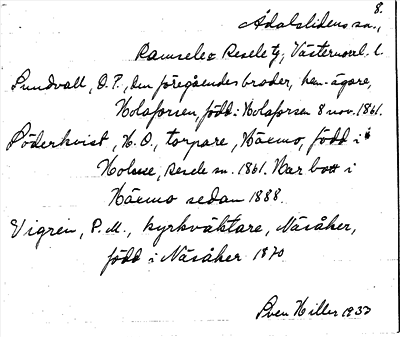 8.
Ådalslidens sn.,
Ramsele o Resele tg, Västernorrl. l.
Sundvall, O. P., den föregåendes broder, hem. ägare,
Holaforsen, född i Holaforsen 8 nov. 1861.
Söderkvist, H. O., torpare, Håxmo, född i
Resele sn. 1861. Har bott i
Håxmo sedan 1888.
Vigren, P. M., kyrkväktare, Näsåker,
född i Näsåker 1870
Sven Hiller 1937